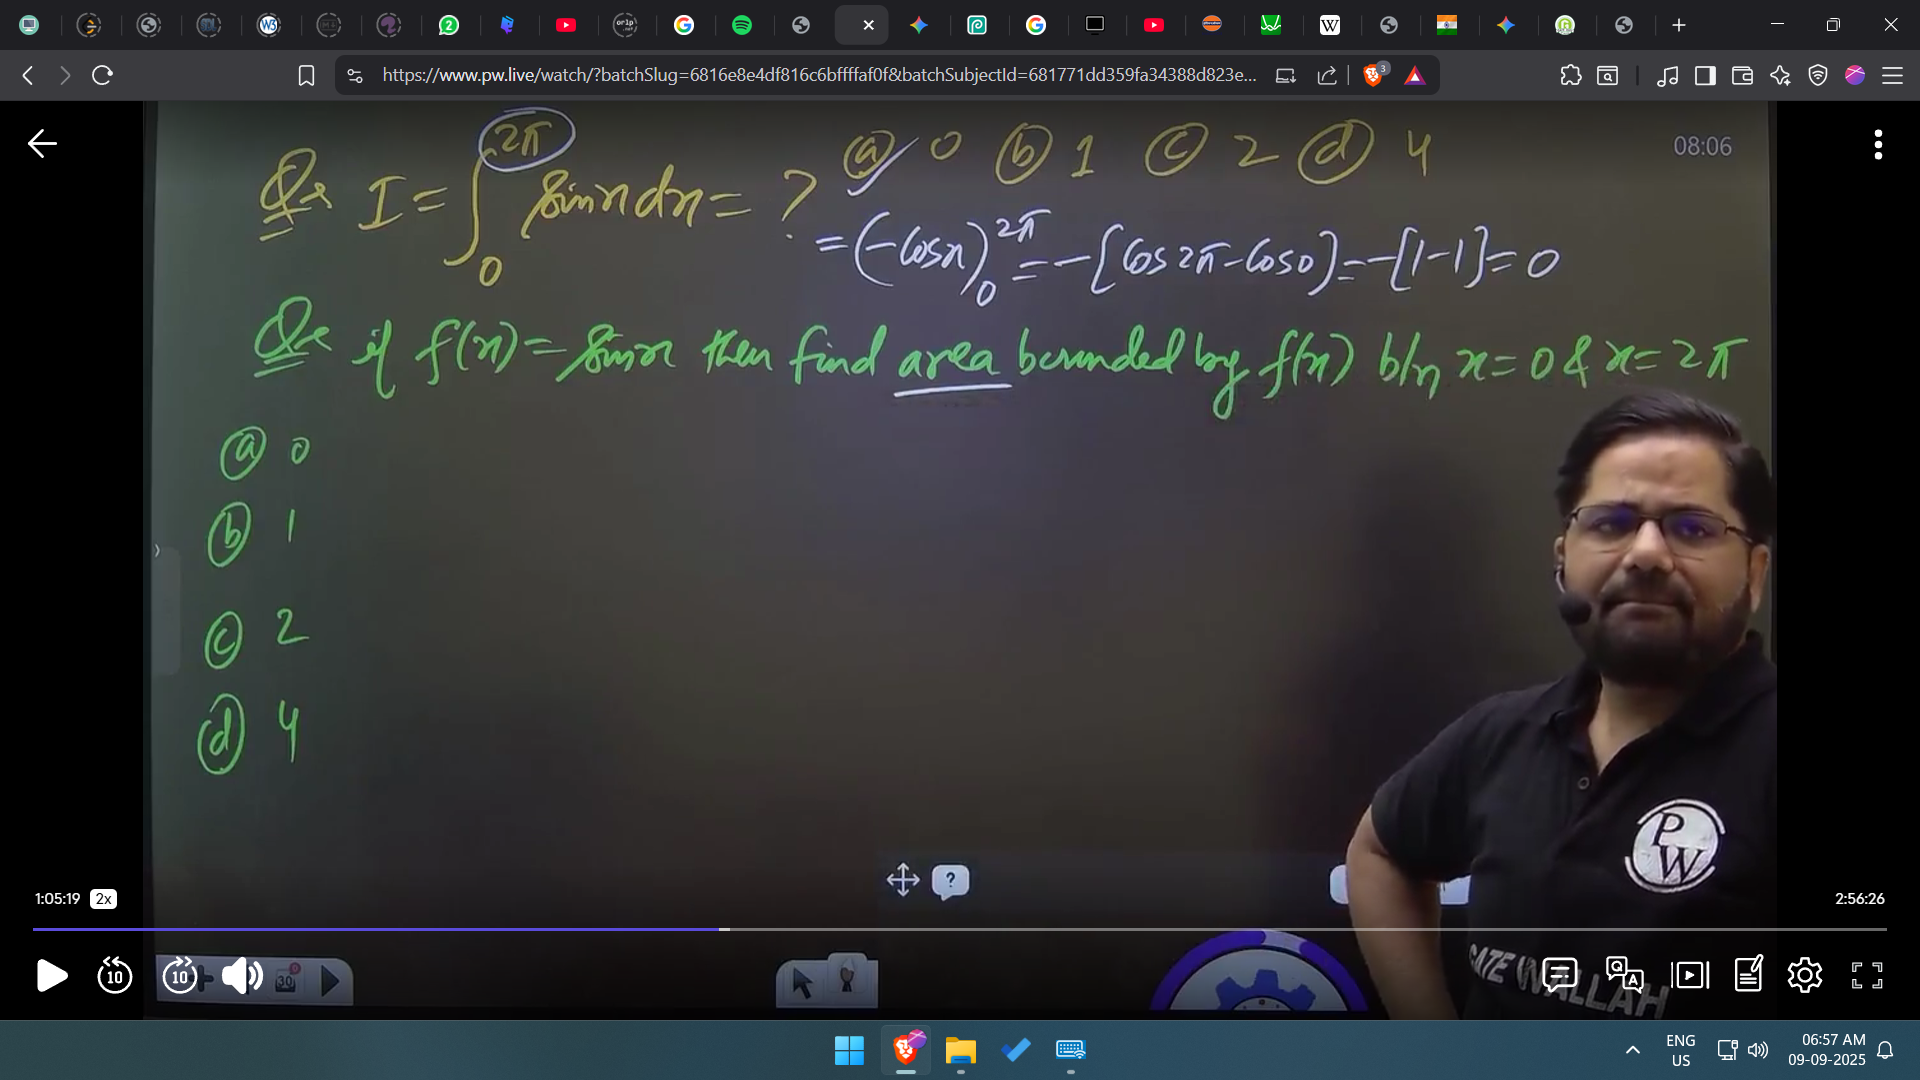 https://www.pw.live/watch/?batchSlug=6816e8e4df816c6bffffaf0f&batchSubjectId=681771dd359fa34388d823e...
3
08:06
Qs I = ∫₀^2π sinx dx = ?  ⓐ 0 ⓑ 1 ⓒ 2 ⓓ 4
= (-cosx)₀^2π = -[cos2π - cos0] = -[1-1] = 0
Qs if f(x) = sinx then find area bounded by f(x) b/n x = 0 & x = 2π
ⓐ 0
ⓑ 1
ⓒ 2
ⓓ 4
PW
?
1:05:19 2x
2:56:26
10 10 30
WALLAH
ENG
US
06:57 AM
09-09-2025